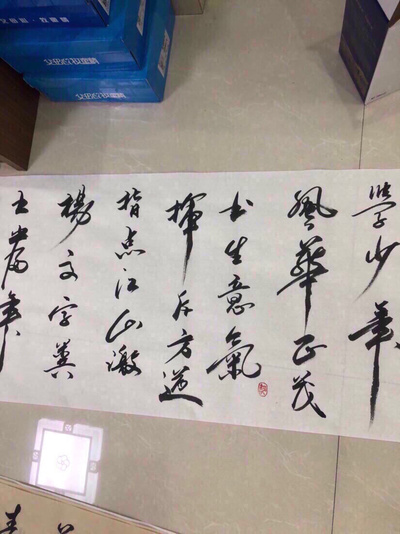 學少年
風華正茂
书生意氣
揮斥方遒
指点江山激
揚文字糞
土當年